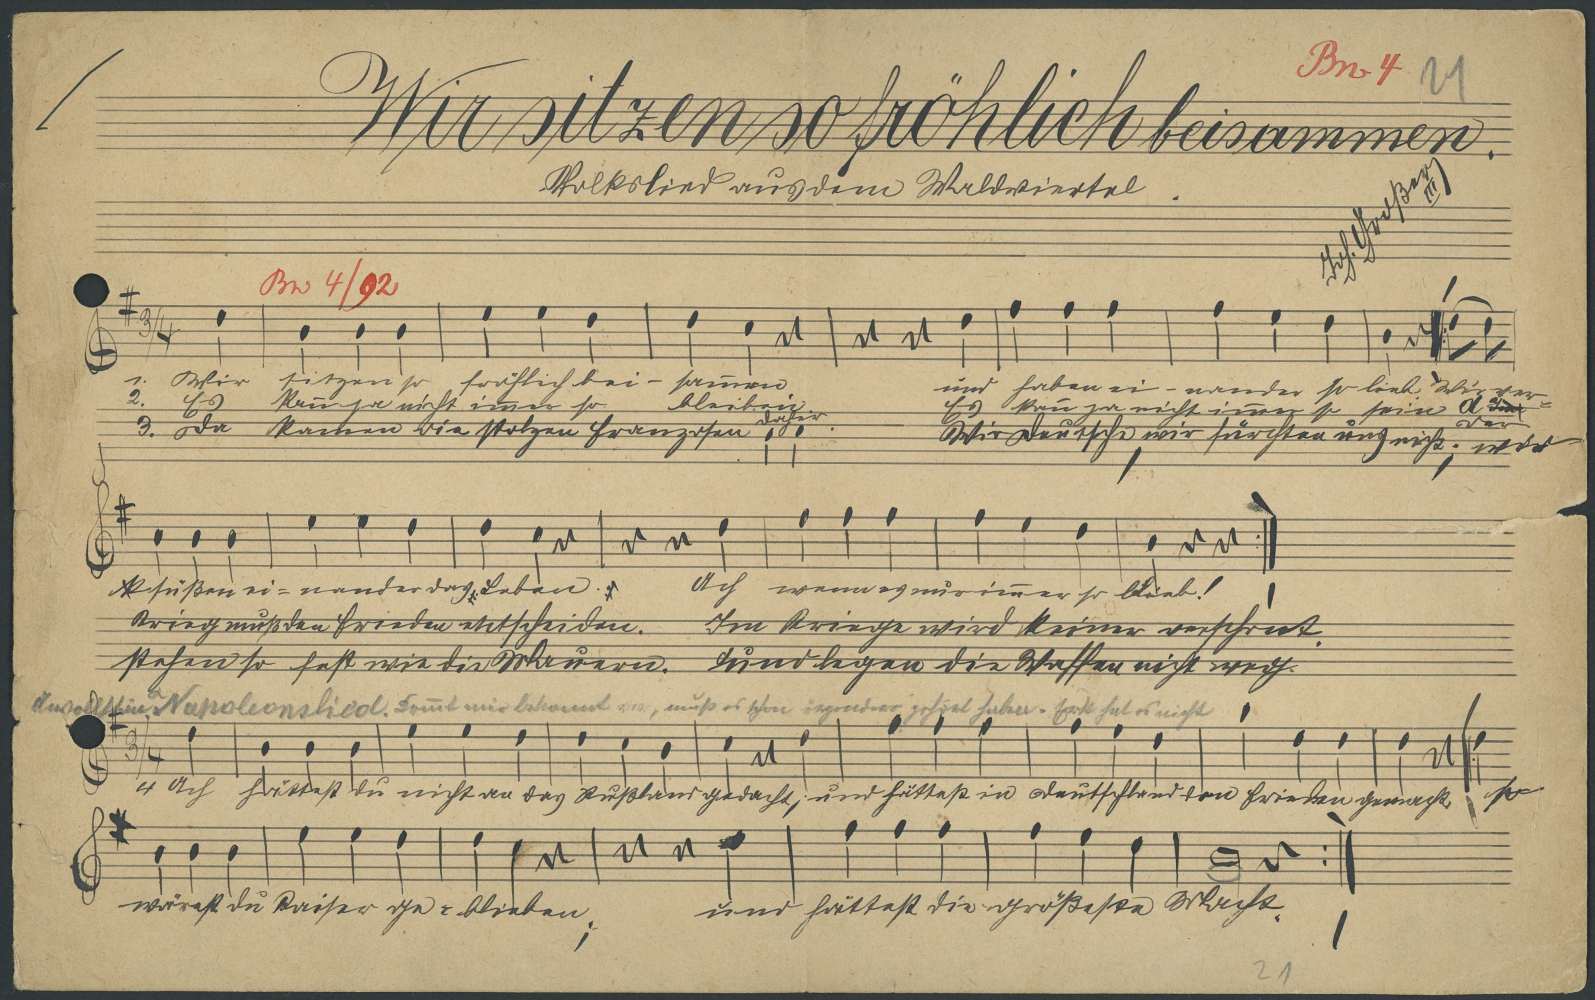 Bn 4 21
Wir sitzen so fröhlich beisammen.
Volkslied aus dem Waldviertel.
Joh. Großer III
Bn 4/92
3/4
1. Wir sitzen so fröhlich bei- sam̅en und haben ei- nander so lieb. Wir ver-
2. Es kan̅ ja nicht im̅er so bleiben Es kan̅ ja nicht im̅er so sein Der
3. Da kamen die stolzen Franzosen daher. Wir Deutsche wir fürchten uns nicht; wir
süßen ei= nander das Leben. Ach wenn es nur im̅er so blieb!
Krieg muß den Frieden entscheiden. Im Kriege wird keiner verschont.
stehen so fest wie die Mauern. und legen die Waffen nicht weg.
Napoleonslied. Kom̅t mir bekannt vor, muß es schon irgendwo gehört haben.
3/4
4 Ach hättest du nicht an das Rußland gedacht, und hättest in Deutschland den Frieden gemacht, so
wärest du Kaiser ge= blieben, und hättest die größeste Macht.
21